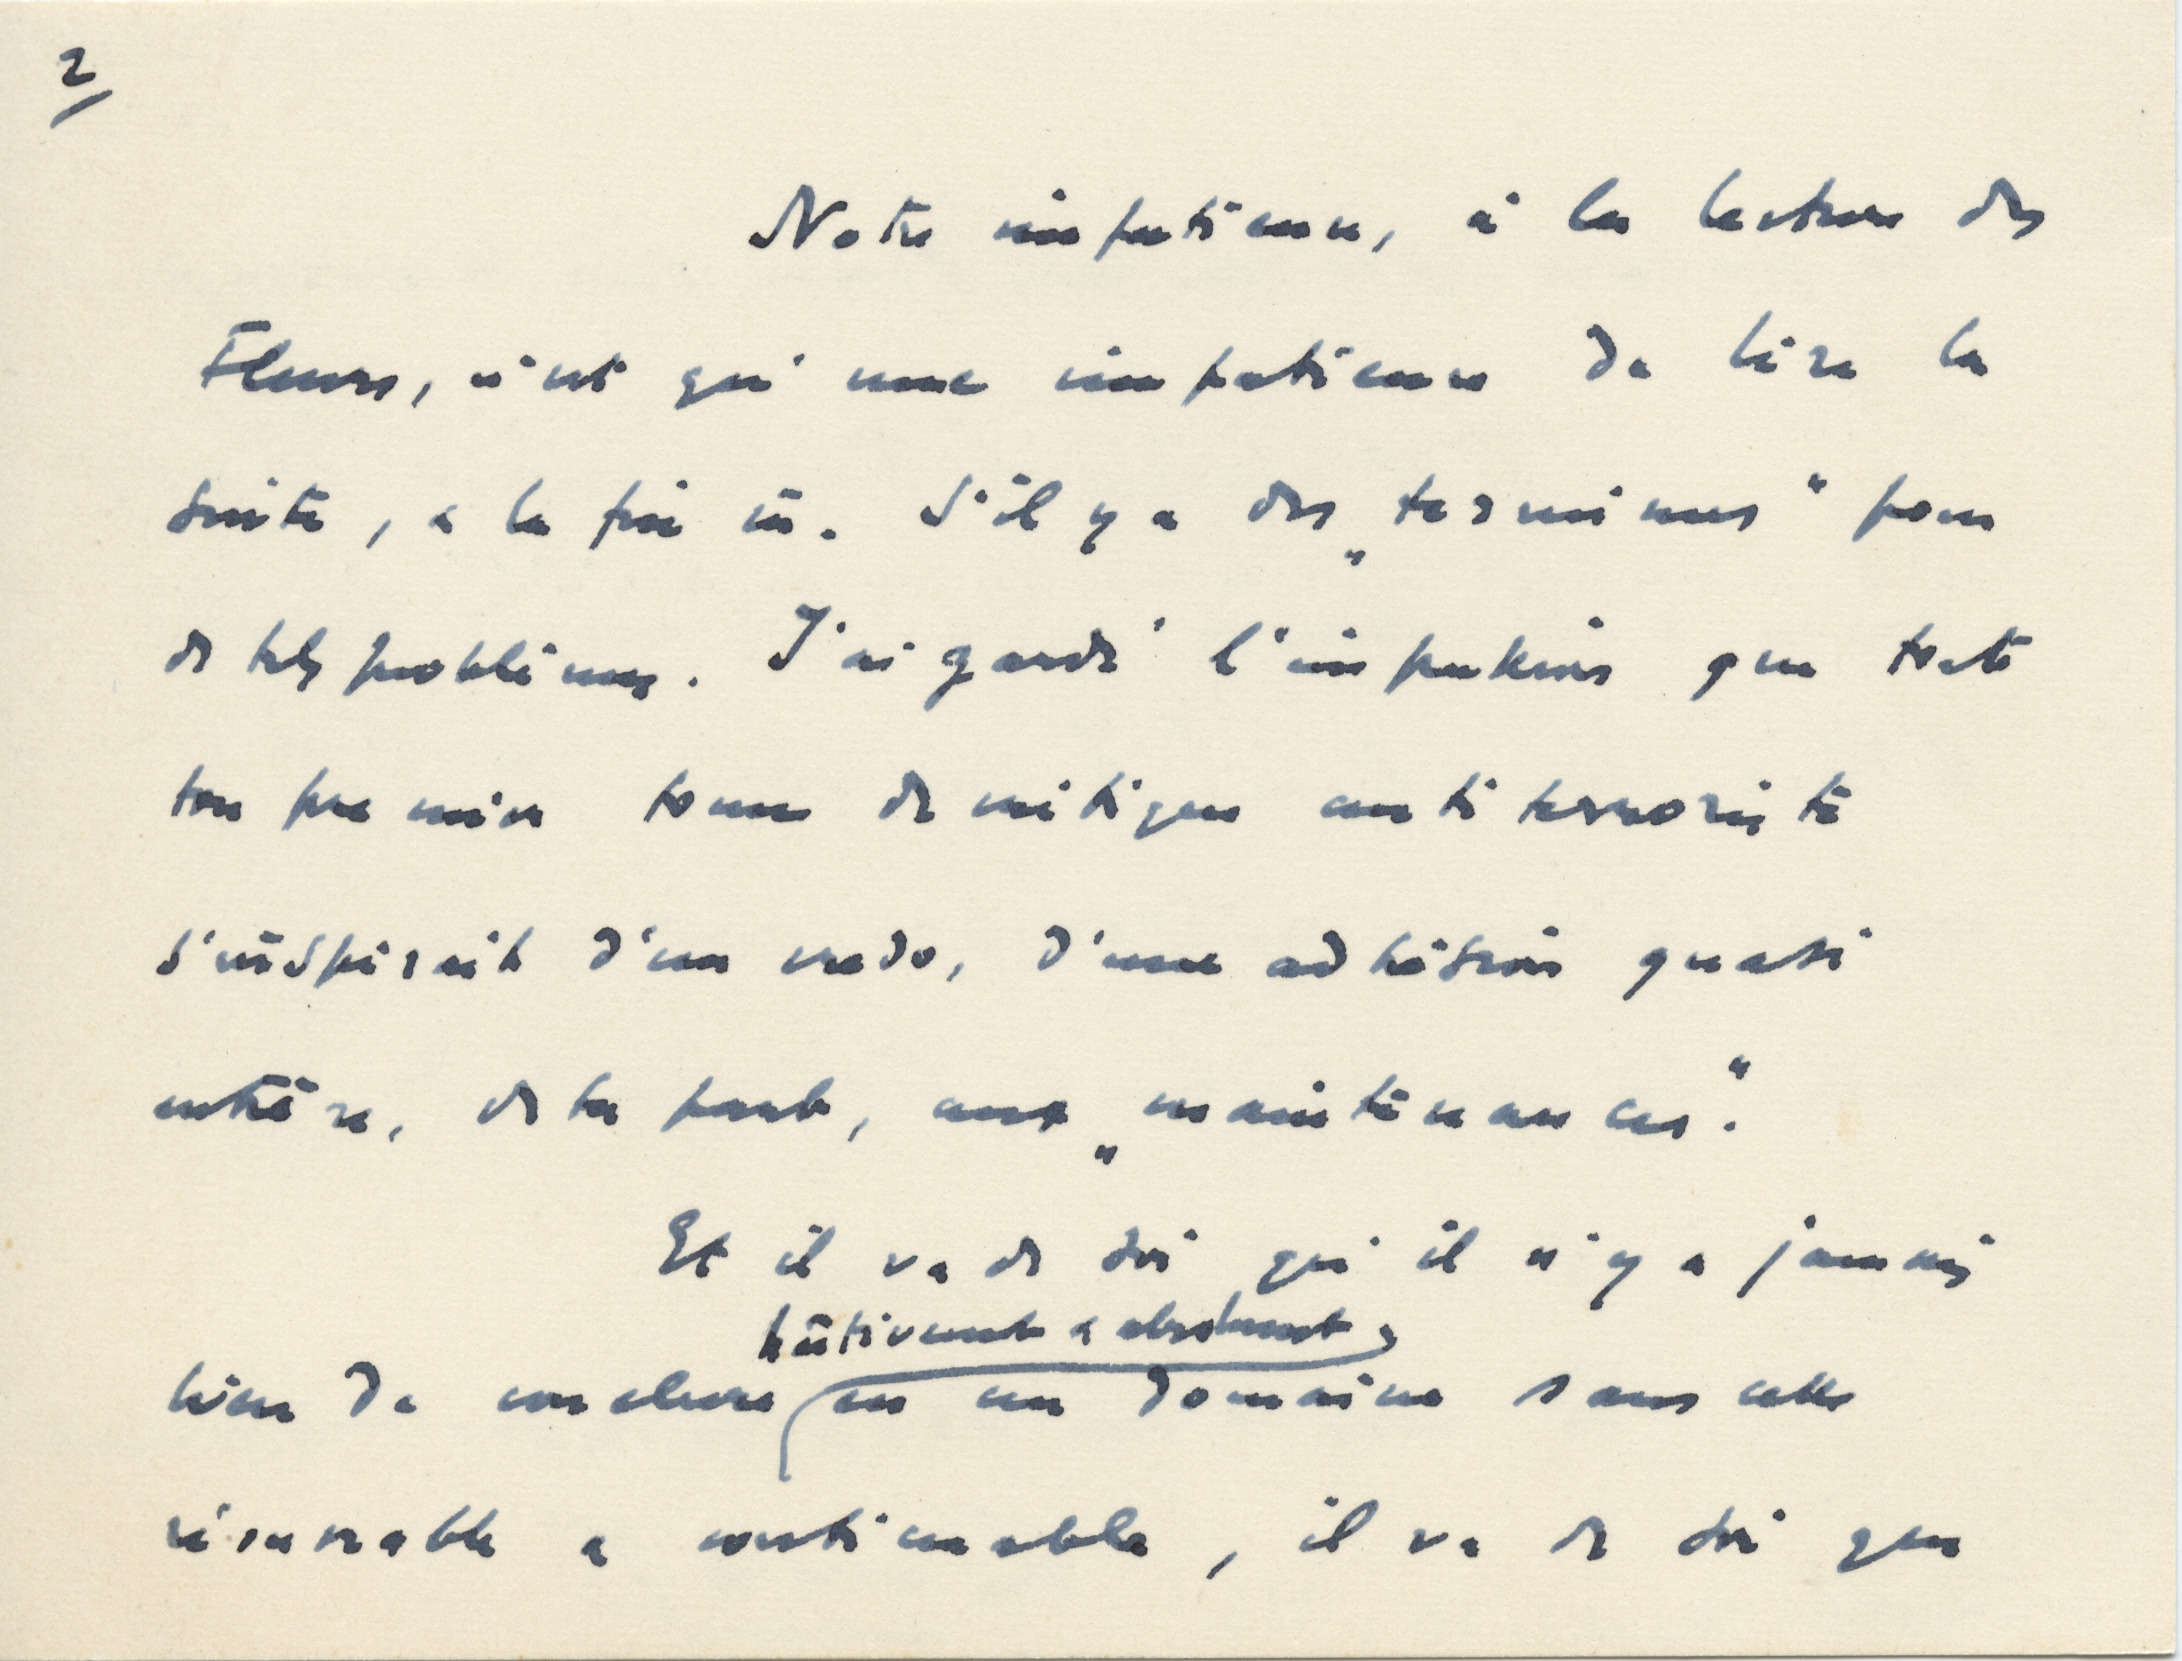 2/
Notre impatience, à la lecture des
Fleurs, n'est qu'une impatience de lire la
suite, & la fin. S'il y a des „terminus" pour
de tels problèmes. J'ai gardé l'impression que tout
ton premier tome de critique antiterroriste
s'inspirait d'un credo, d'une adhésion quasi
entière, de ta part, aux „maintenances".
Et il va de soi qu'il n'y a jamais
hâtivement & absolument,
lieu de conclure en un domaine sans cesse
& continuable, il va de soi que